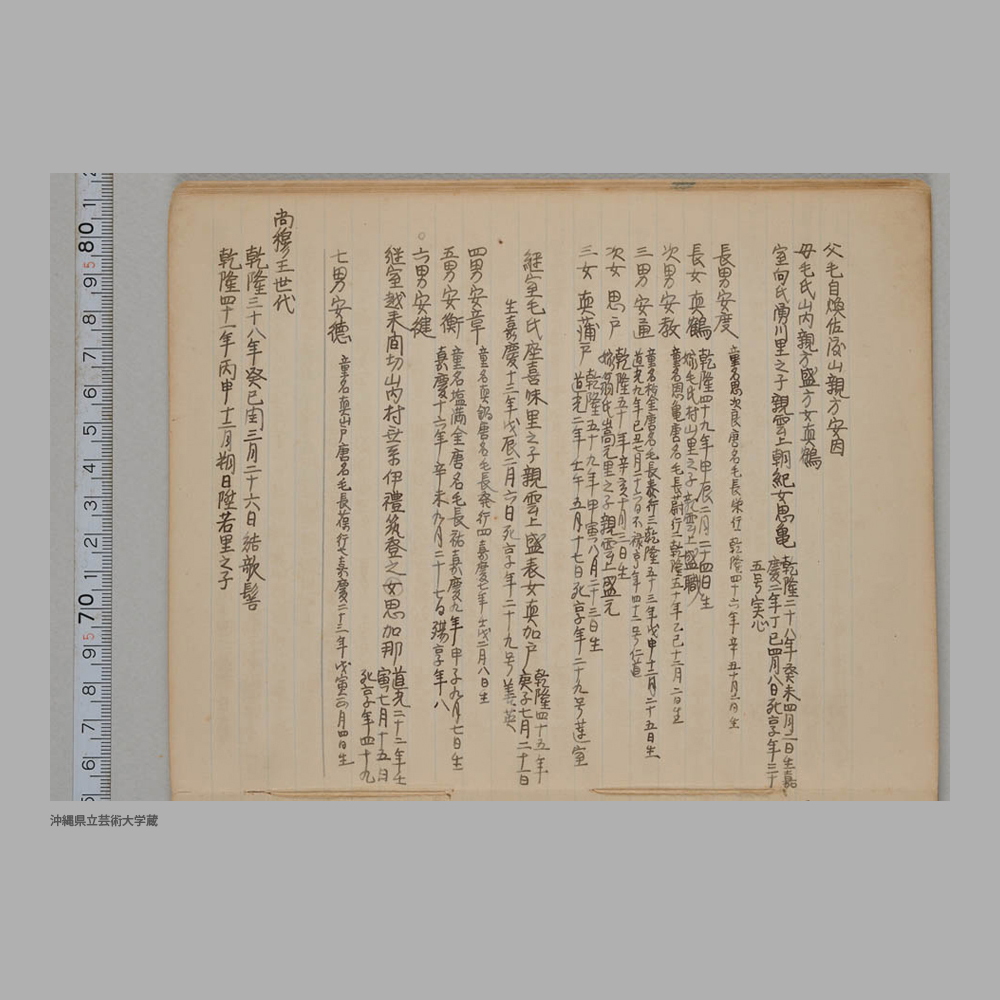 父毛自煥佐渡山親方安因
母毛氏山内親方盛方女真鶴
室向氏湧川里之子親雲上朝紀女思亀
乾隆二十八年癸未四月二日生嘉
慶二年丁巳四月八日死享年三十
五号実心
長男安度
童名思次良唐名毛長栄行一乾隆四十六年辛丑十月二日生
長女真鶴
乾隆四十九年甲辰二月二十四日生
嫁毛氏村山里之子親雲上盛職
次男安教
童名思亀唐名毛長蔚行二乾隆五十年乙巳十二月二日生
三男安通
童名樽金唐名毛長泰行三乾隆五十三年戊申十二月二十五日生
道光九年己丑七月二十六日不禄享年四十二号仁道
次女思戸
乾隆五十六年辛亥十月三日生
嫁翁氏嵩元里之子親雲上盛元
三女真蒲戸
乾隆五十九年甲寅八月二十三日生
道光二年壬午五月十七日死享年二十九号蓮室
継室毛氏座喜味里之子親雲上盛表女真加戸
乾隆四十五年
庚子七月二十一日
生嘉慶十三年戊辰二月六日死享年二十九号美英
四男安章
童名真鍋唐名毛長発行四嘉慶七年壬戌二月八日生
五男安衡
童名塩満金唐名毛長祐嘉慶九年甲子九月七日生
嘉慶十六年辛未九月二十七日殤享年八
六男安健
継室越来間切山内村無系伊禮筑登之女思加那
道光二十二年壬
寅七月十五日
死享年四十九
七男安徳
童名真山戸唐名毛長葆行七嘉慶二十三年戊寅四月四日生
尚穆王世代
乾隆三十八年癸巳閏三月二十六日結歌髻
乾隆四十一年丙申十二月朔日陞若里之子
80
70
沖縄県立芸術大学蔵